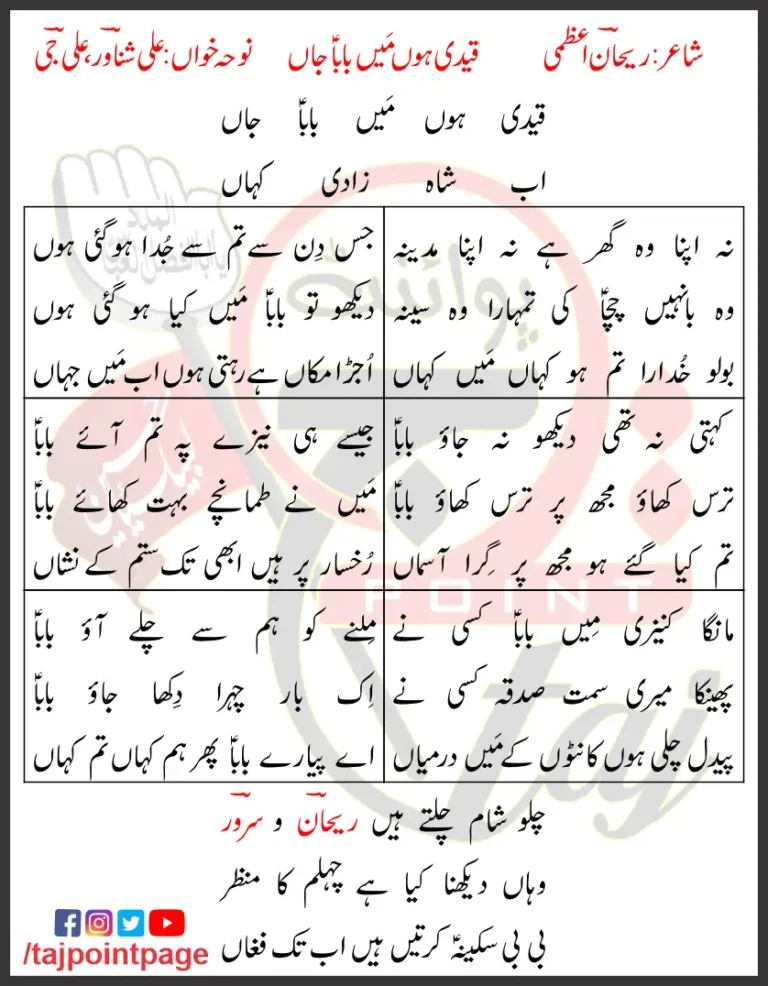 شاعر: ریحان اعظمی قیدی ہوں مَیں باباؑ جاں نوحہ خواں: علی شناور، علی جی
قیدی ہوں مَیں باباؑ جاں
اب شاہ زادی کہاں
نہ اپنا وہ گھر ہے نہ اپنا مدینہ
وہ بانہیں چچاؑ کی تمہارا وہ سینہ
بولو خُدارا تم ہو کہاں مَیں کہاں
جس دِن سے تم سے جُدا ہوگئی ہوں
دیکھو تو باباؑ مَیں کیا ہو گئی ہوں
اُجڑا مکاں ہے رہتی ہوں اب مَیں جہاں
کہتی نہ تھی دیکھو نہ جاؤ باباؑ
ترس کھاؤ مجھ پر ترس کھاؤ باباؑ
تم کیا گئے ہو مجھ پر گِرا آسماں
جیسے ہی نیزے پہ تم آئے باباؑ
مَیں نے طمانچے بہت کھائے باباؑ
رُخسار پر ہیں ابھی تک ستم کے نشاں
مانگا کنیزی مِیں باباؑ کسی نے
پھینکا میری سمت صدقہ کسی نے
پیدل چلی ہوں کانٹوں کے مَیں درمیاں
مِلنے کو ہم سے چلے آؤ باباؑ
اِک بار چہرا دِکھا جاؤ باباؑ
اے پیارے باباؑ پھر ہم کہاں تم کہاں
چلو شام چلتے ہیں ریحان و سرور
وہاں دیکھنا کیا ہے چہلم کا منظر
بی بی سکینہؑ کرتیں ہیں اب تک فغاں
/tajpointpage
پوائنٹ
POINT
taj